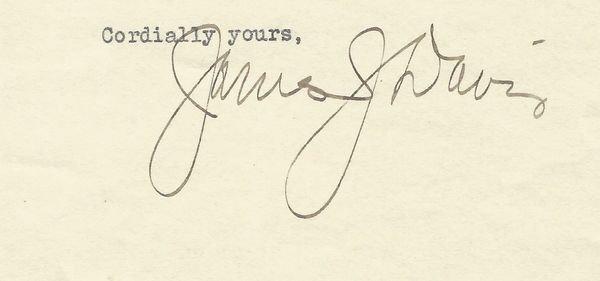 Cordially yours,
James J Davis